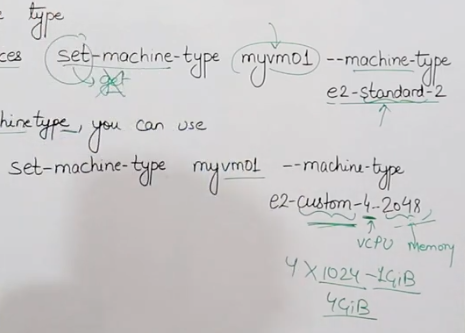 type
set-machine-type myvm01 --machine-type
get
e2-standard-2
you can use
set-machine-type myvm01 --machine-type
e2-custom-4-2048
vCPU memory
4 X 1024 - 1GiB
4GiB